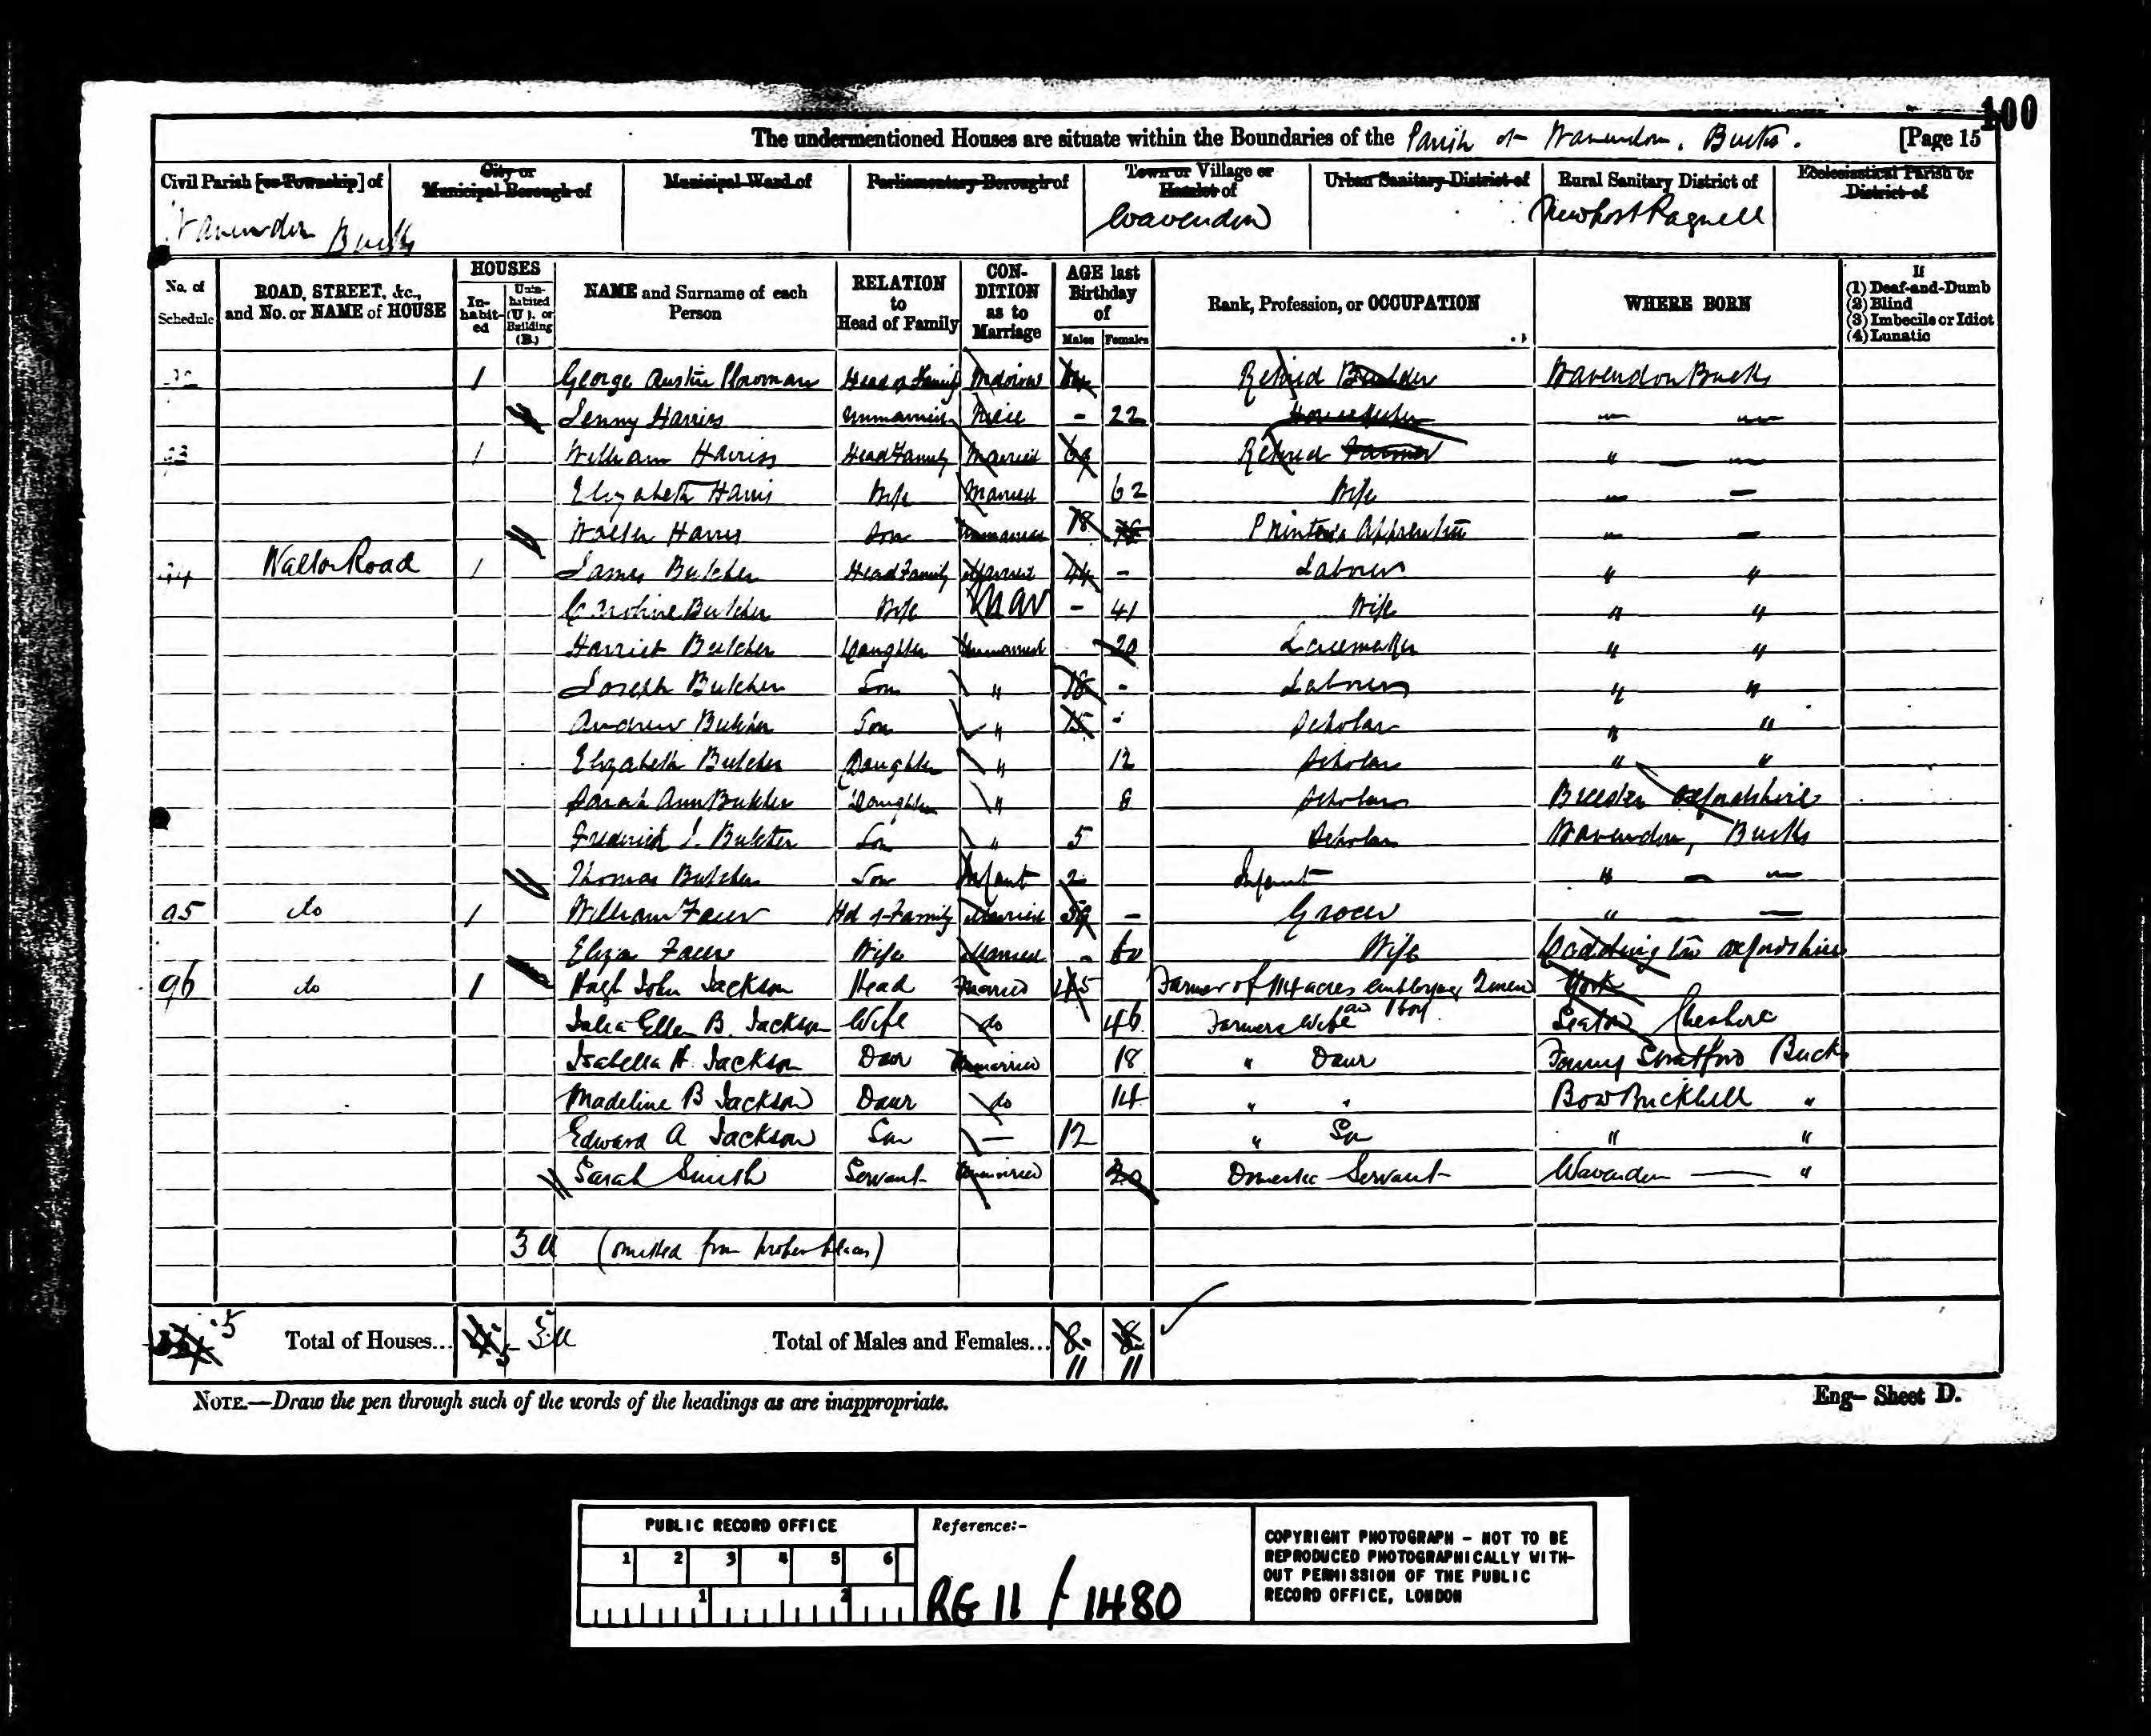 100
The undermentioned Houses are situate within the Boundaries of the Parish of Wavendon, Bucks. [Page 15
Civil Parish [or Township] of City or Municipal Borough of Municipal Ward of Parliamentary Borough of Town or Village or Hamlet of Urban Sanitary District of Rural Sanitary District of Ecclesiastical Parish or District of
Wavendon Bucks Wavendon Newport Pagnell
No. of Schedule ROAD, STREET, &c., and No. or NAME of HOUSE HOUSES Inhabited Uninhabited (U.), or Building (B.) NAME and Surname of each Person RELATION to Head of Family CONDITION as to Marriage AGE last Birthday of Males Females Rank, Profession, or OCCUPATION WHERE BORN If (1) Deaf-and-Dumb (2) Blind (3) Imbecile or Idiot (4) Lunatic
1 George Austin Plowman Head of Family Widower Retired Builder Wavendon Bucks
Jenny Harris Unmarried Niece - 22 Housekeeper " "
93 1 William Harriss Head Family Married 69 Retired Farmer " "
Elizabeth Harris Wife Married 62 Wife " "
Walter Harris Son Unmarried 18 Printers Apprentice " "
94 Walton Road 1 James Butcher Head Family Married 44 - Labourer " "
Caroline Butcher Wife Mar - 41 Wife " "
Harriet Butcher Daughter Unmarried 20 Lacemaker " "
Joseph Butcher Son " 18 - Labourer " "
Andrew Butcher Son " 15 - Scholar " "
Elizabeth Butcher Daughter " 12 Scholar " "
Sarah Ann Butcher Daughter " 8 Scholar Oxfordshire
Frederick J. Butcher Son " 5 Scholar Wavendon, Bucks
Thomas Butcher Son Infant 2 Infant " "
95 do 1 William Hd of Family Married 59 - Grocer " "
Eliza Wife Married - 60 Wife Oxfordshire
96 do 1 Hugh John Jackson Head Married 45 Farmer of acres employing 2 men and 1 boy York
Julia Ellen B. Jackson Wife do 46 Farmers Wife Cheshire
Isabella H. Jackson Daur Unmarried 18 " Daur Fenny Stratford Bucks
Madeline B Jackson Daur do 14 " " Bow Brickhill "
Edward A Jackson Son — 12 " Son " "
Sarah Smith Servant Unmarried 20 Domestic Servant Wavendon "
3 U (omitted from proper places)
5 Total of Houses... 5 3 U Total of Males and Females... 8 8
11 11
NOTE.—Draw the pen through such of the words of the headings as are inappropriate. Eng— Sheet D.
PUBLIC RECORD OFFICE
1 2 3 4 5 6
1 2
Reference:-
RG 11 / 1480
COPYRIGHT PHOTOGRAPH - NOT TO BE
REPRODUCED PHOTOGRAPHICALLY WITH-
OUT PERMISSION OF THE PUBLIC
RECORD OFFICE, LONDON